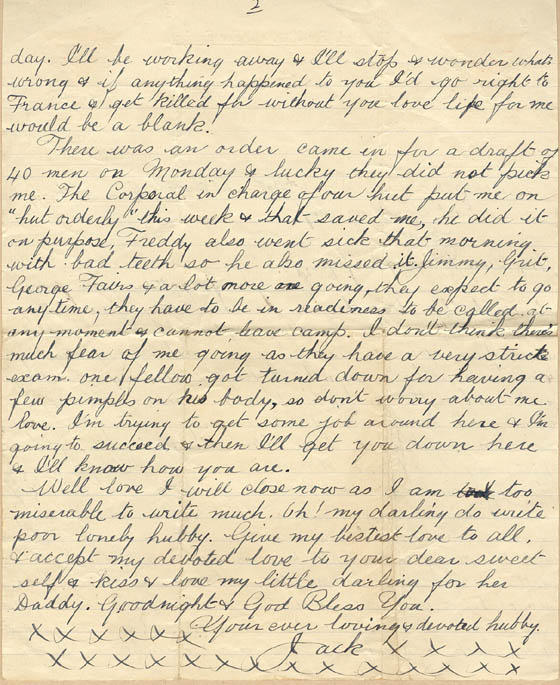 2
day. I'll be working away & I'll stop & wonder whats
wrong & if anything happened to you I'd go right to
France & get killed for without you love life for me
would be a blank.
There was an order came in for a draft of
40 men on Monday & lucky they did not pick
me. The Corporal in charge of our hut put me on
"hut orderly" this week & that saved me, he did it
on purpose, Freddy also went sick that morning
with bad teeth so he also missed it. Jimmy, Grit,
George Fairs & a lot more are going, they expect to go
anytime, they have to be in readiness to be called at
any moment & cannot leave camp. I don't think there's
much fear of me going as they have a very strict
exam. one fellow got turned down for having a
few pimples on his body, so dont worry about me
love. I'm trying to get some job around here & I'm
going to succeed & then I'll get you down here
& I'll know how you are.
Well love I will close now as I am too
miserable to write much. Oh! my darling do write
poor lonely hubby. Give my bestest love to all.
& accept my devoted love to your dear sweet
self & kiss & love my little darling for her
Daddy. Goodnight & God Bless You.
Your ever loving & devoted hubby.
X X X X X X X Jack X X X X
X X X X X X X X X X X X X